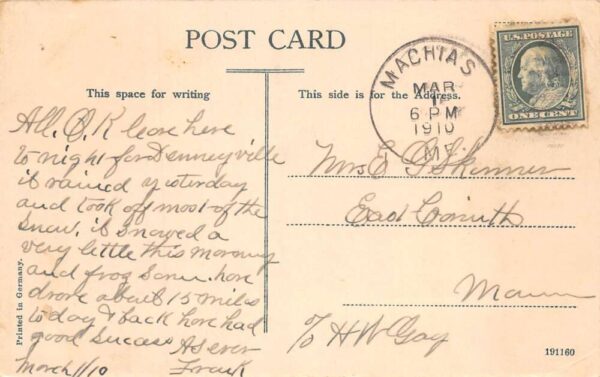 POST CARD
This space for writing
This side is for the Address.
MACHIAS
MAR
1
6 PM
1910
M
U.S. POSTAGE
ONE CENT
All O.K leave here
to night for Dennyville
it rained yesterday
and took off most of the
snow, it snowed a
very little this morning
and
drove about 15 miles
to day & back have had
good success
As ever
March 1/10 Frank
Mrs E G Skinner
East Corinth
Maine
c/o H W Gay
Printed in Germany.
191160